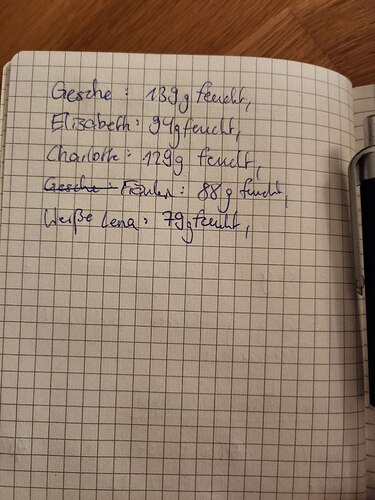 Gesche : 139g feucht,
Elisabeth : 94g feucht,
Charlotte : 129g feucht,
Gesche : 88g feucht,
Weiße Lena : 79g feucht,